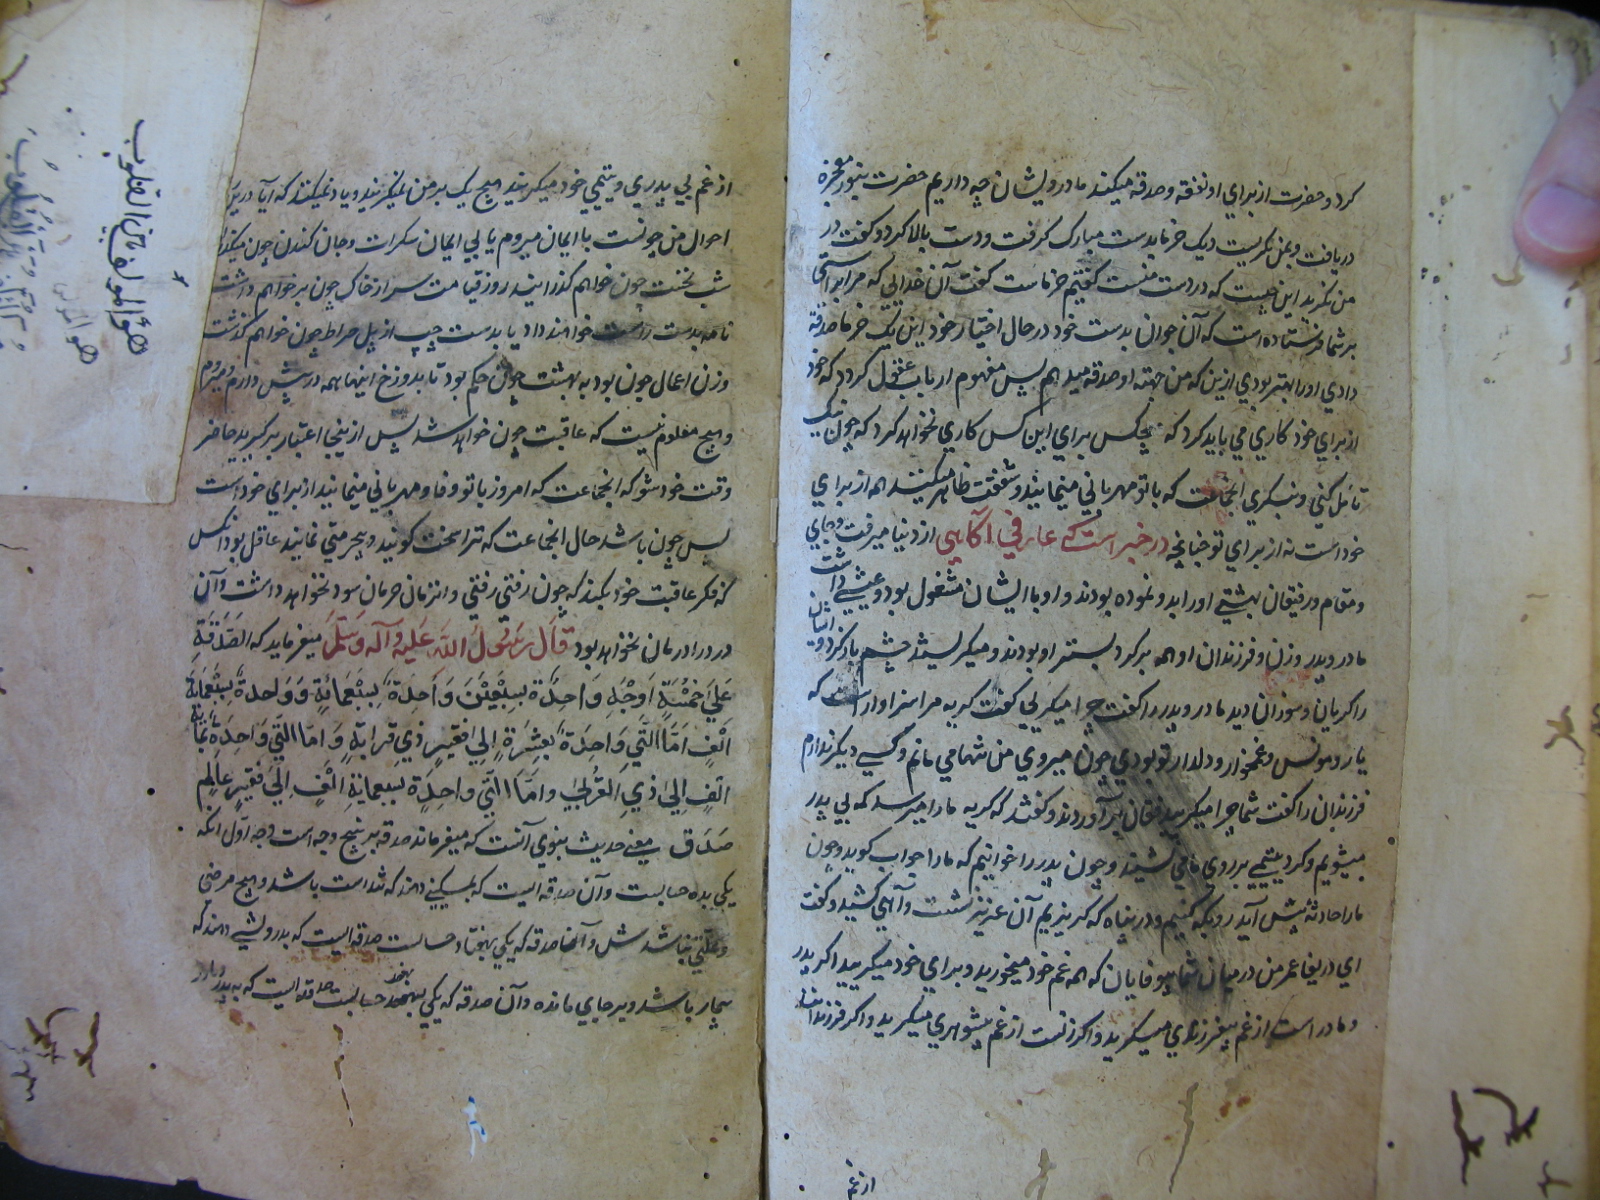 کرد و حضرت از برای او نفقه و صدقه میکند مادر و یشان چه داریم حضرت بنور معجزه
دریافت و بمن نکریست و یک خرما بدست مبارک کرفت و دست بالا کرد و کفت در
من نکرید این چیست که در دست منست کفتیم خرماست کفت آن خدائی که مرا براستی
بر شما فرستاده است که آن جوان بدست خود در حال اختیار خود این یک خرما صدقه
دادی او را بهتر بودی ازین که من جهته او صدقه میدهم پس مفهوم ارباب عقول کردد که خود
از برای خود کاری می باید کرد که هیچکس برای این کس کاری نخواهد کرد که چون نیک
تأمل کنی و بنکری انجماعت که با تو مهربانی مینمایند و شفقت ظاهر میکنند همه از برای
خود است نه از برای تو چنانچه در خبر است که عارفی آکاهی از دنیا میرفت و جای
و مقام و رفیقان بهشتی او را بدو نموده بودند و او با ایشان مشغول بود و عیشی داشت
مادر و پدر و زن و فرزندان او همه بر کرد بستر او بودند و میکریستند چشم باز کرد و ایشان
را کریان و سوزان دید مادر و پدر را کفت چرا میکریی کفت کریه مرا سزاوار است که
یار و مونس و غمخوار و دلدار تو بودی چون میروی من تنها می مانم و کسی دیکر ندارم
فرزندان را کفت شما چرا میکریید فغان بر آوردند و کفتند که کریه ما را میرسد که بی پدر
میشویم و کرد یتیمی بر روی ما می نشیند و چون پدر را خوانیم که ما را جواب کوید و چون
ما را حادثه پیش آید رو بکه کنیم و در پناه که کریزیم آن عزیز نشست و آهی کشید و کفت
ای دریغا عمر من در میان شما بیوفایان که همه غم خود میخورید و برای خود میکریید اکر پدر
و مادر است از غم بیفرزندی میکرید و اکر زنست از غم بیشوهری میکرید و اکر فرزندانند
از غم
از غم بی پدری و یتیمی خود میکریند هیچ یک بر من نمیکریند و یاد نمیکنند که آیا درین
احوال من چونست با ایمان میروم یا بی ایمان سکرات و جان کندن چون میکند
شب نخست چون خواهم کذرانید روز قیامت سر از خاک چون بر خواهم داشت
نامه بدست راست خواهند داد یا بدست چپ از پل صراط چون خواهم کذشت
وزن اعمال چون بود به بهشت چون حکم بود تا بدوزخ اینها همه در پیش دارم و میروم
و هیچ معلوم نیست که عاقبت چون خواهد شد پس ازینجا اعتبار بر کیرید حاضر
وقت خود شو که انجماعت که امروز با تو وفا و مهربانی مینمایند از برای خود است
پس چون باشد حال انجماعت که ترا سخت کویند و بیحرمتی نمایند عاقل بود انکس
که فکر عاقبت خود بکند که چون رفتی رفتی و انزمان حرمان سود نخواهد داشت و آن
درد را درمان نخواهد بود قال رسول الله علیه و آله و سلم میفرماید که الصدقة
علی خمسة اوجه واحدة بسبعین واحدة بسبعمائة و واحدة بسبعمایة
الف اما التی واحدة بعشرة الی فقیر ذی قرابة و اما التی واحدة
الف الی ذی القربی و اما التی واحدة بسبعمایة الف الی فقیر عالم
صدق معنی حدیث نبوی آنست که میفرماند صدقه بر پنج وجه است وجه اول انکه
یکی بده حسابست و آن صدقه ایست که بمسکینی دهند که تندرست باشد و هیچ مرضی
و علتی نباشدش و آنها صدقه که یکی بهفتاد حسابست صدقه ایست که بدرویشی دهند که
بیمار باشد و بر جای مانده و آن صدقه که یکی بهفتصد حسابست صدقه ایست که به پدر و مادر
هو المؤلف بین القلوب
هو المؤلف